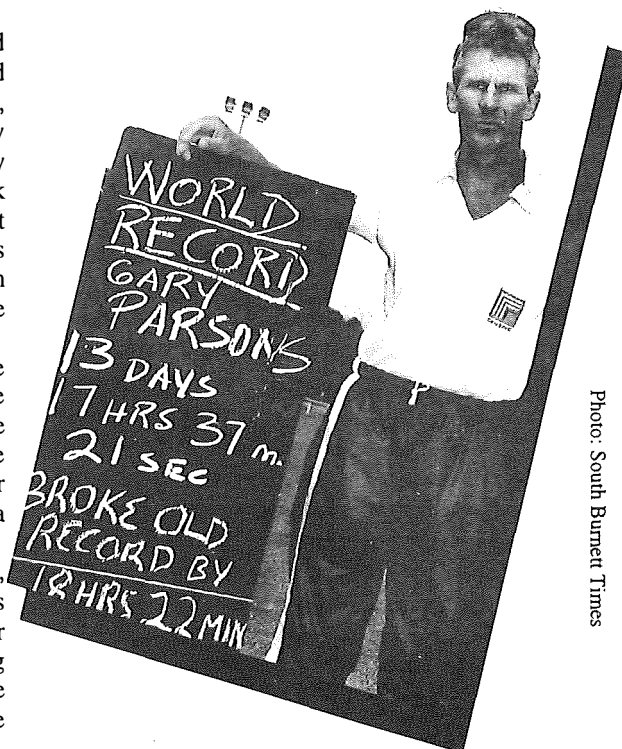 WORLD
RECORD
GARY
PARSONS
13 DAYS
17 HRS 37 m.
21 SEC
BROKE OLD
RECORD BY
18 HRS 22 MIN
Photo: South Burnett Times